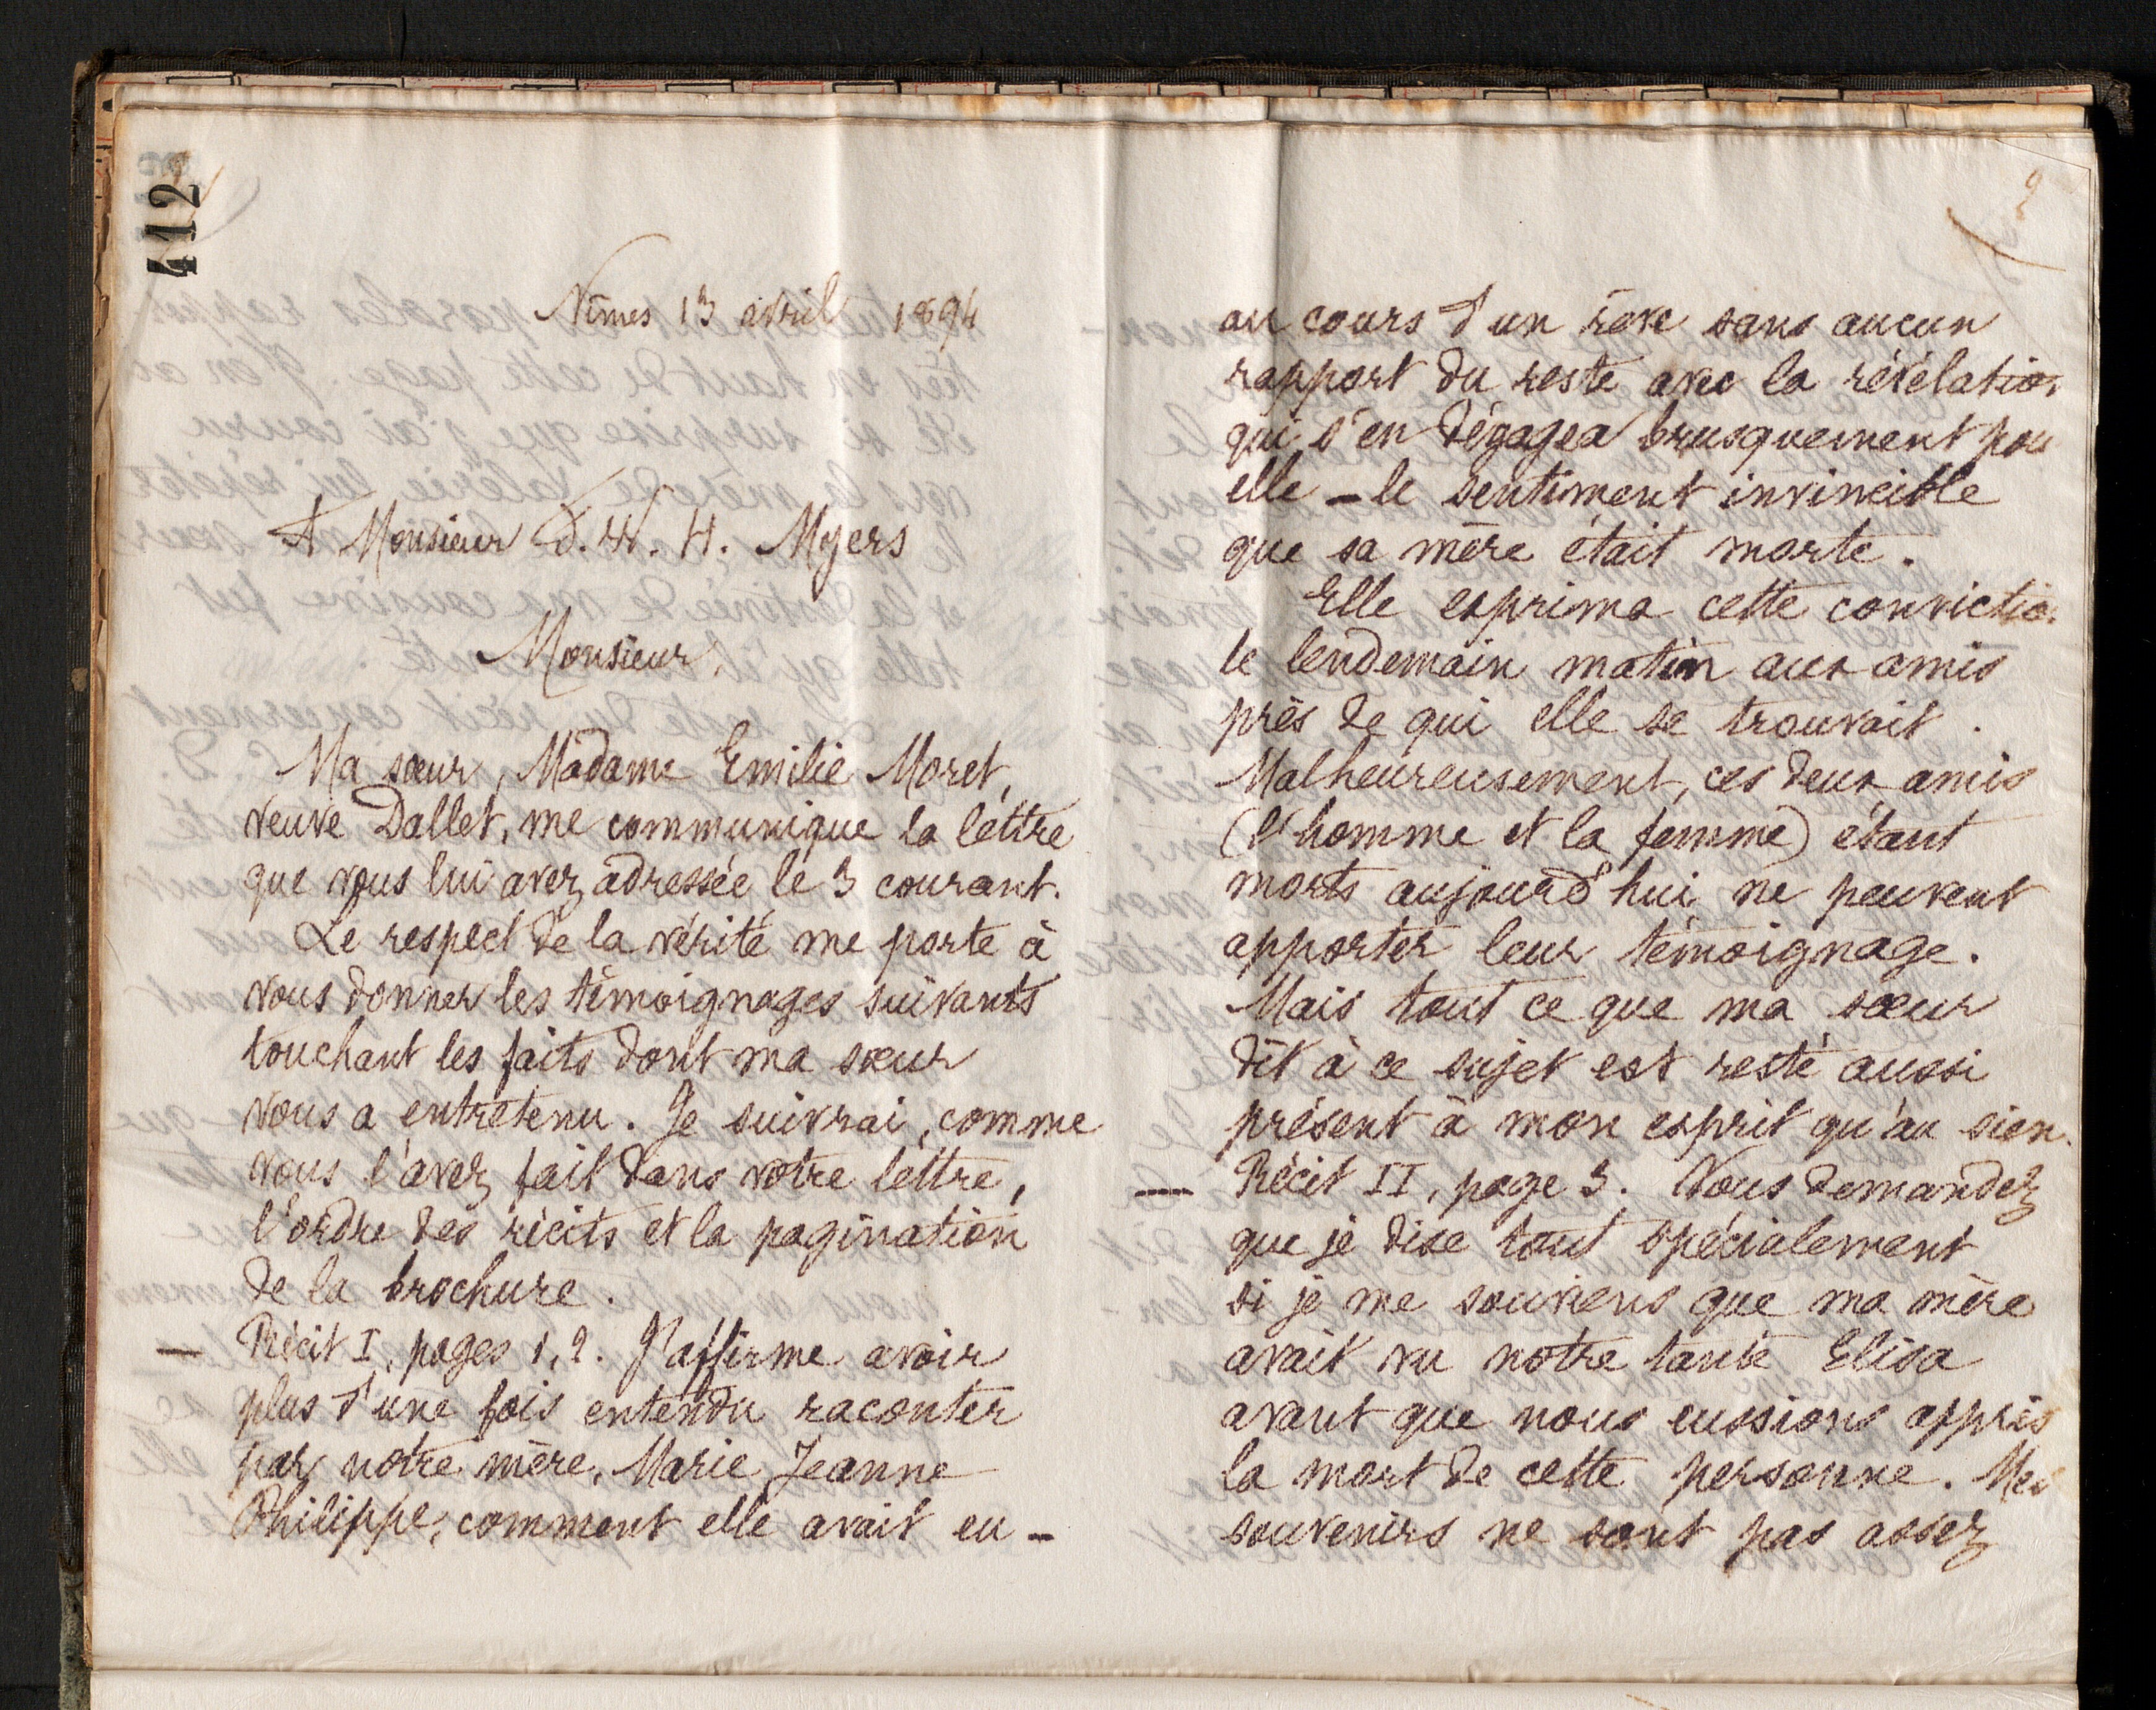 412
Nîmes 13 avril 1894
A Monsieur F. W. H. Myers
Monsieur,
Ma sœur, Madame Emilie Moret,
veuve Dallet, me communique la lettre
que vous lui avez adressée le 3 courant.
Le respect de la vérité me porte à
vous donner les témoignages suivants
touchant les faits dont ma sœur
vous a entretenu. Je suivrai, comme
vous l'avez fait dans votre lettre,
l'ordre des récits et la pagination
de la brochure.
— Récit I, pages 1, 2. J'affirme avoir
plus d'une fois entendu raconter
par notre mère, Marie Jeanne
Philippe, comment elle avait eu —
2
au cours d'un rêve sans aucun
rapport du reste avec la révélation
qui s'en dégagea brusquement pou
elle — le sentiment invincible
que sa mère était morte.
Elle exprima cette convictio
le lendemain matin aux amis
près de qui elle se trouvait.
Malheureusement, ces deux amis
(l'homme et la femme) étant
morts aujourd'hui ne peuvent
apporter leur témoignage.
Mais tout ce que ma sœur
dit à ce sujet est resté aussi
présent à mon esprit qu'au sien.
— Récit II, page 3. Vous demandez
que je dise tout spécialement
si je me souviens que ma mère
avait vu notre tante Elisa
avant que nous eussions appris
la mort de cette personne. Mes
souvenirs ne sont pas assez